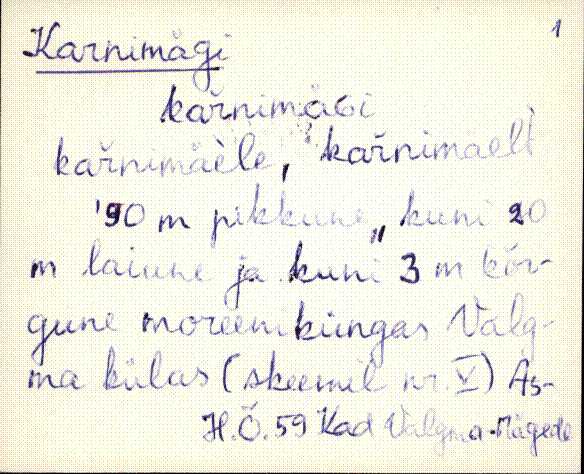 1
Karnimägi
kařnimäGi
kařnimäèle, kařnimäelt
90 m pikkune, kuni 20
m laiune ja kuni 3 m kõr-
gune moreeniküngas Valg-
ma külas (skeemil nr. V)
H.Õ. 59 Kad Valgma-Mägede